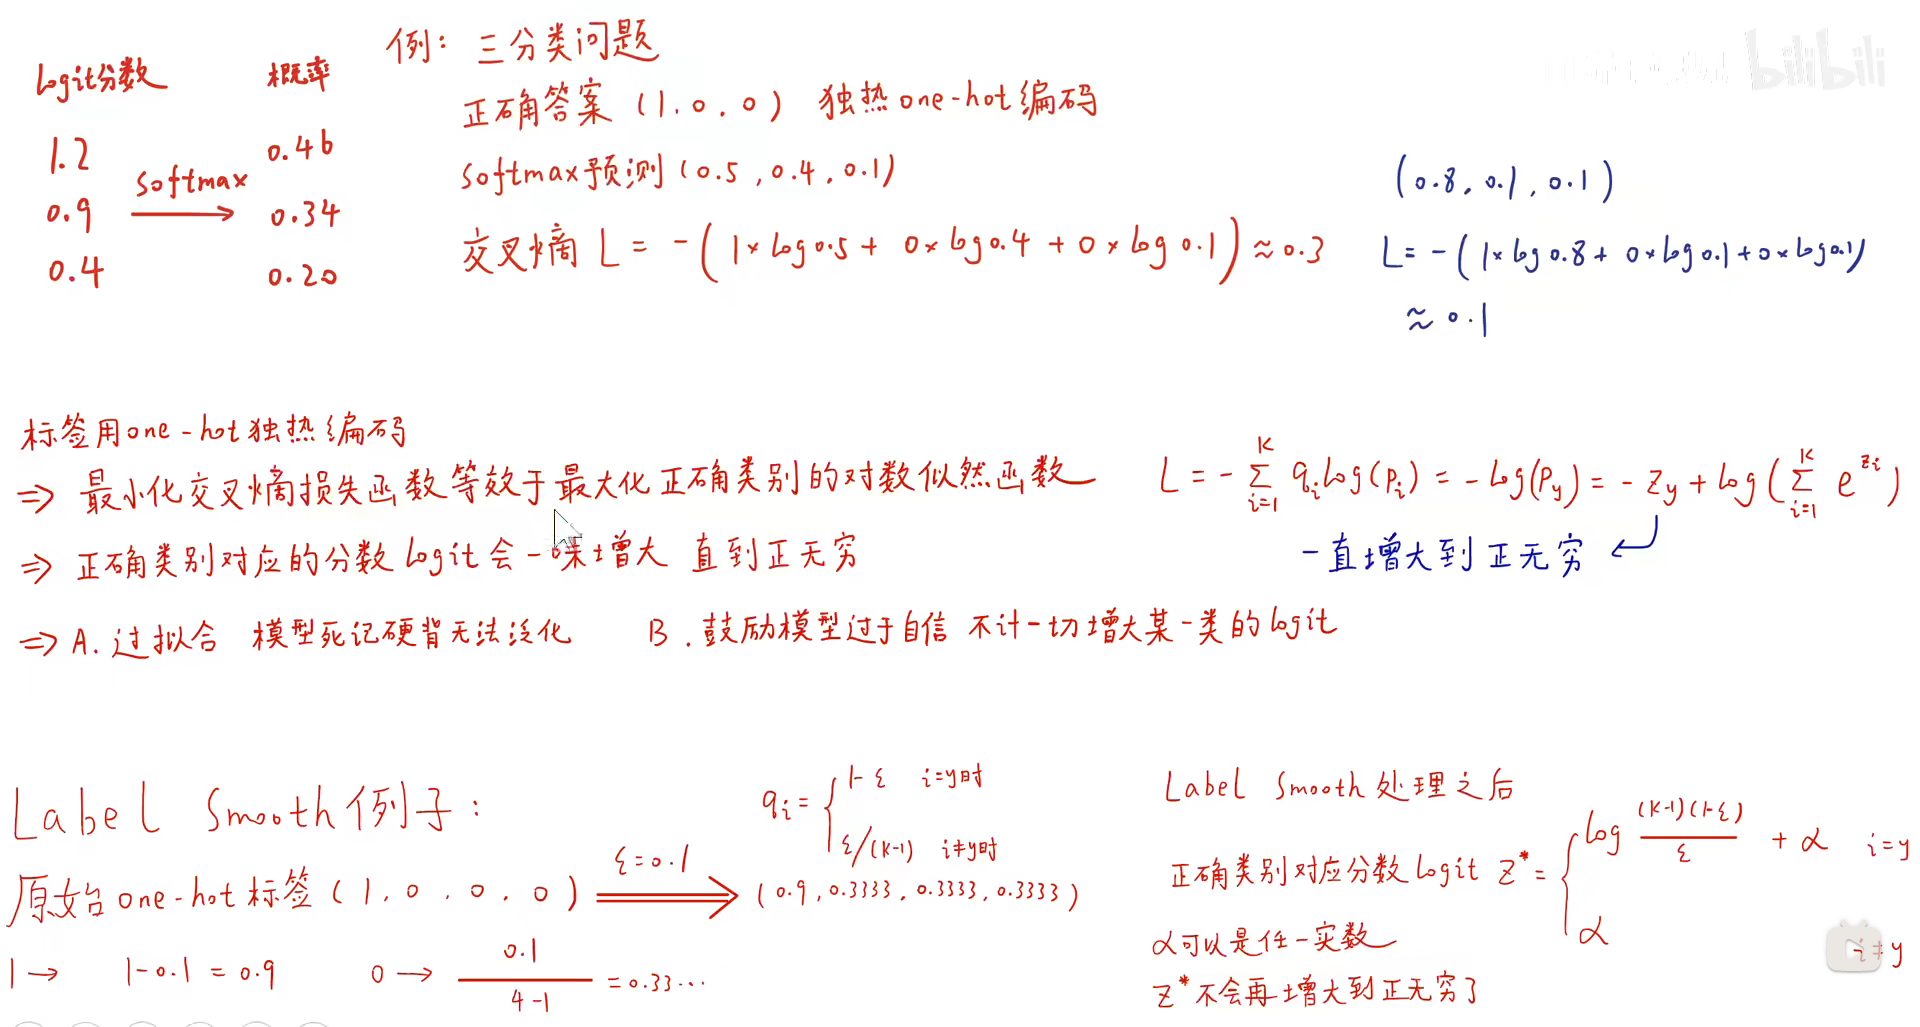 logit分数 概率
1.2 0.46
softmax
0.9 0.34
0.4 0.20
例: 三分类问题
正确答案 (1.0.0) 独热one-hot编码
softmax预测 (0.5,0.4,0.1)
交叉熵 L = -(1×log0.5 + 0×log0.4 + 0×log0.1) ≈0.3
(0.8, 0.1, 0.1)
L= -(1×log0.8+ 0×log0.1+0×log0.1)
≈ 0.1
bilibili
标签用one-hot独热编码
⇒ 最小化交叉熵损失函数等效于最大化正确类别的对数似然函数
L = -∑_{i=1}^{K} q_i log(p_i) = -log(p_y) = -z_y + log(∑_{i=1}^{K} e^{z_i})
⇒ 正确类别对应的分数logit会一味增大 直到正无穷
一直增大到正无穷
⇒ A. 过拟合 模型死记硬背无法泛化 B. 鼓励模型过于自信 不计一切增大某一类的logit
Label Smooth例子:
q_i = { 1-ε i=y时
ε/(K-1) i≠y时
原始one-hot标签 (1.0.0.0) ε=0.1 ⇒ (0.9,0.3333,0.3333,0.3333)
1→ 1-0.1=0.9 0→ 0.1/(4-1) =0.33···
Label Smooth处理之后
正确类别对应分数logit Z*= { log (K-1)(1-ε)/ε + α i=y
α i≠y
α可以是任一实数
Z*不会再增大到正无穷了